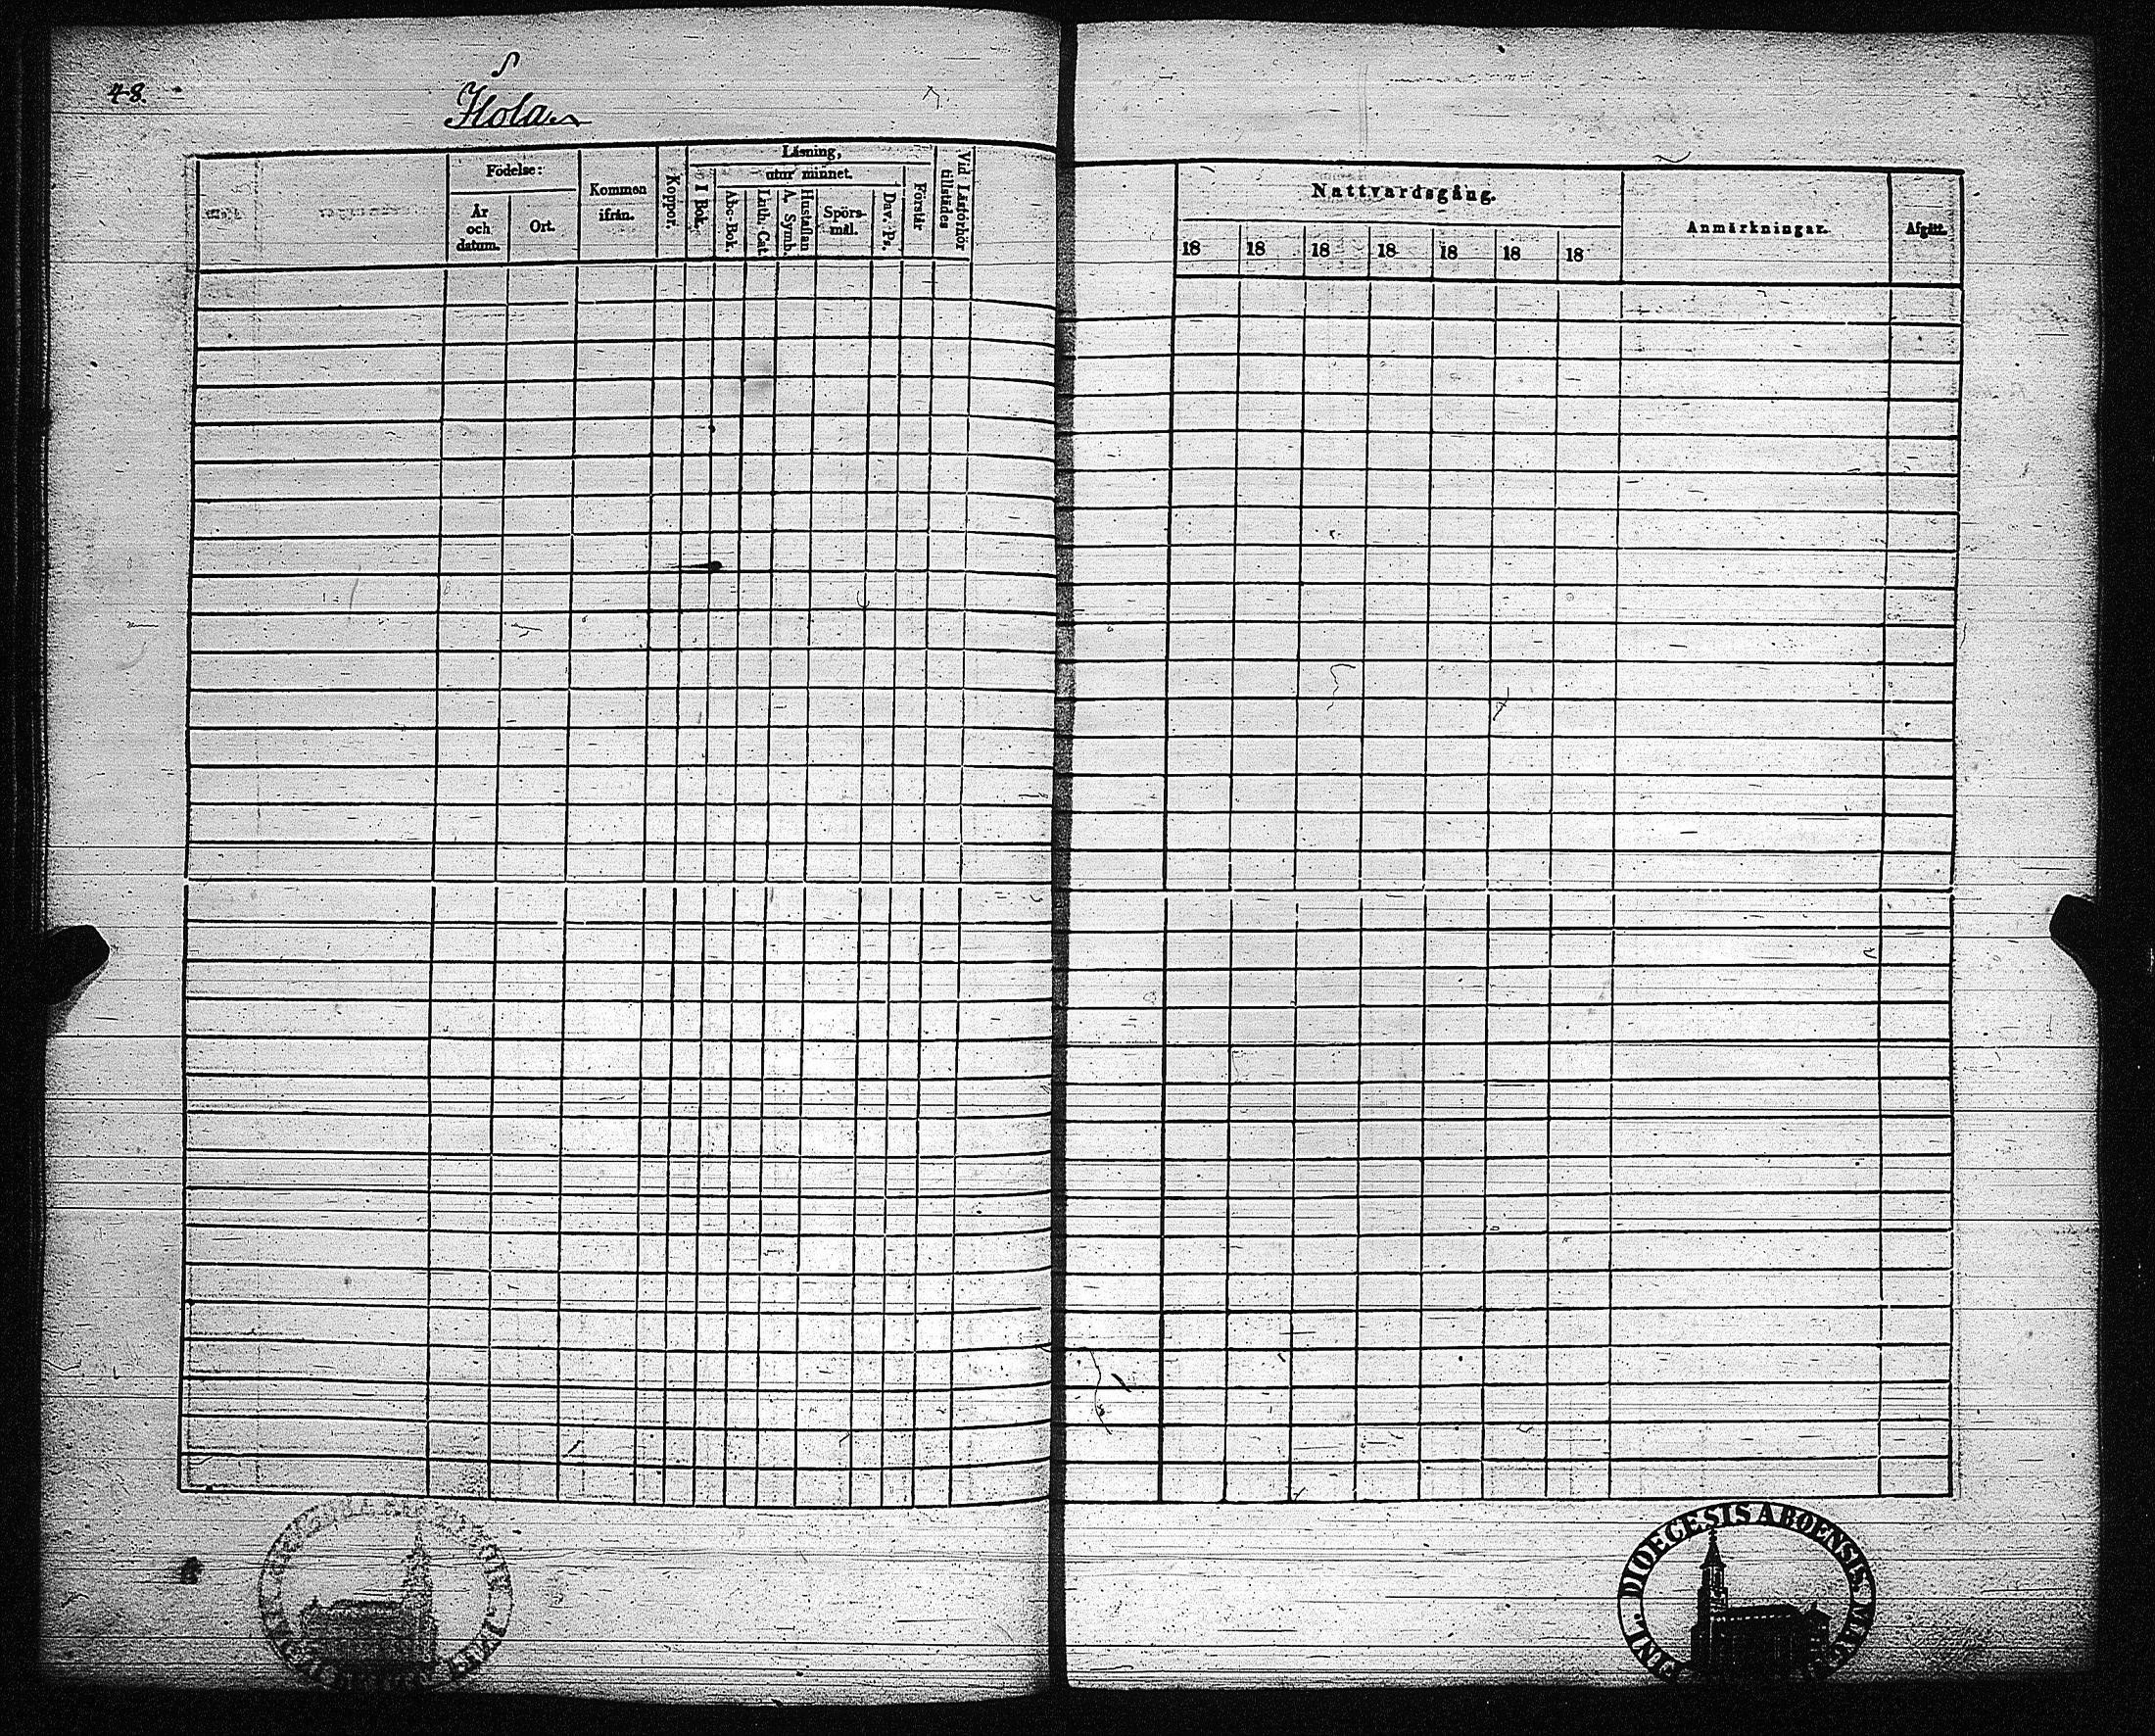 48.
Hola
Födelse:
År och datum.
Ort.
Kommen ifrån.
Koppor.
Läsning,
I Bok.
utur minnet.
Abc-Bok.
Luth. Cat.
A. Symb.
Hustaflan
Spörsmål.
Dav. Ps.
Förstår
Vid Läsförhör tillstädes
Nattvardsgång.
18 18 18 18 18 18 18
Anmärkningar.
Afgått.
FINL. DIOECESIS ABOENSIS